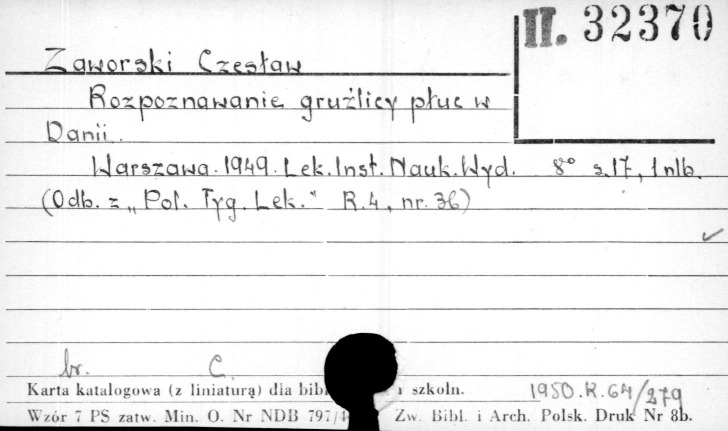 II. 32370
Zaworski Czesław
Rozpoznawanie gruźlicy płuc w
Danii.
Warszawa. 1949. Lek. Inst. Nauk. Wyd. 8° s. 17, 1 nlb.
(Odb. z „Pol. Tyg. Lek." R. 4, nr. 36)
br. C.
Karta katalogowa (z liniaturą) dla bibl szkoln. 1950. R. 64/279
Wzór 7 PS zatw. Min. O. Nr NDB 797/4 Zw. Bibl. i Arch. Polsk. Druk Nr 8b.